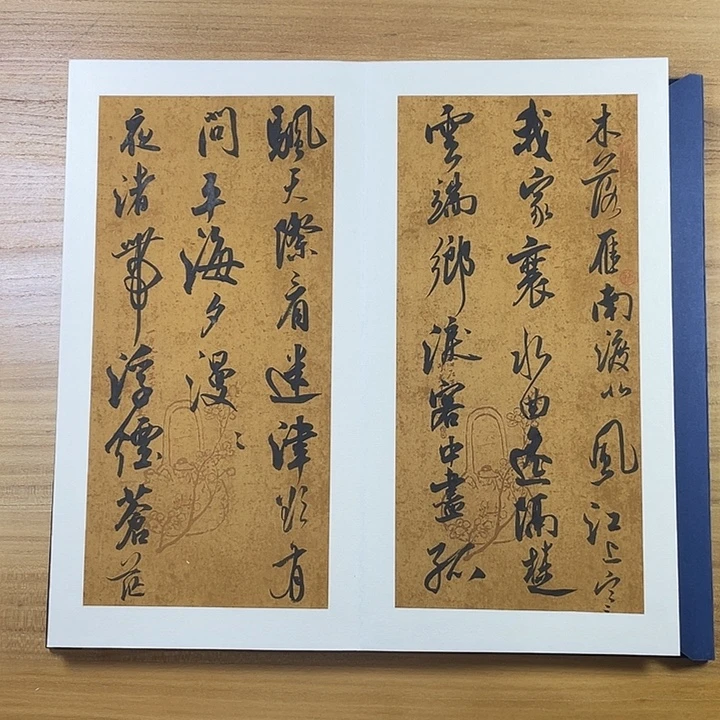 木落雁南渡北風江上寒
我家襄水曲遙隔楚
雲端鄉淚客中盡孤
颿天際看迷津欲有
問平海夕漫〻
夜渚帶浮煙蒼茫